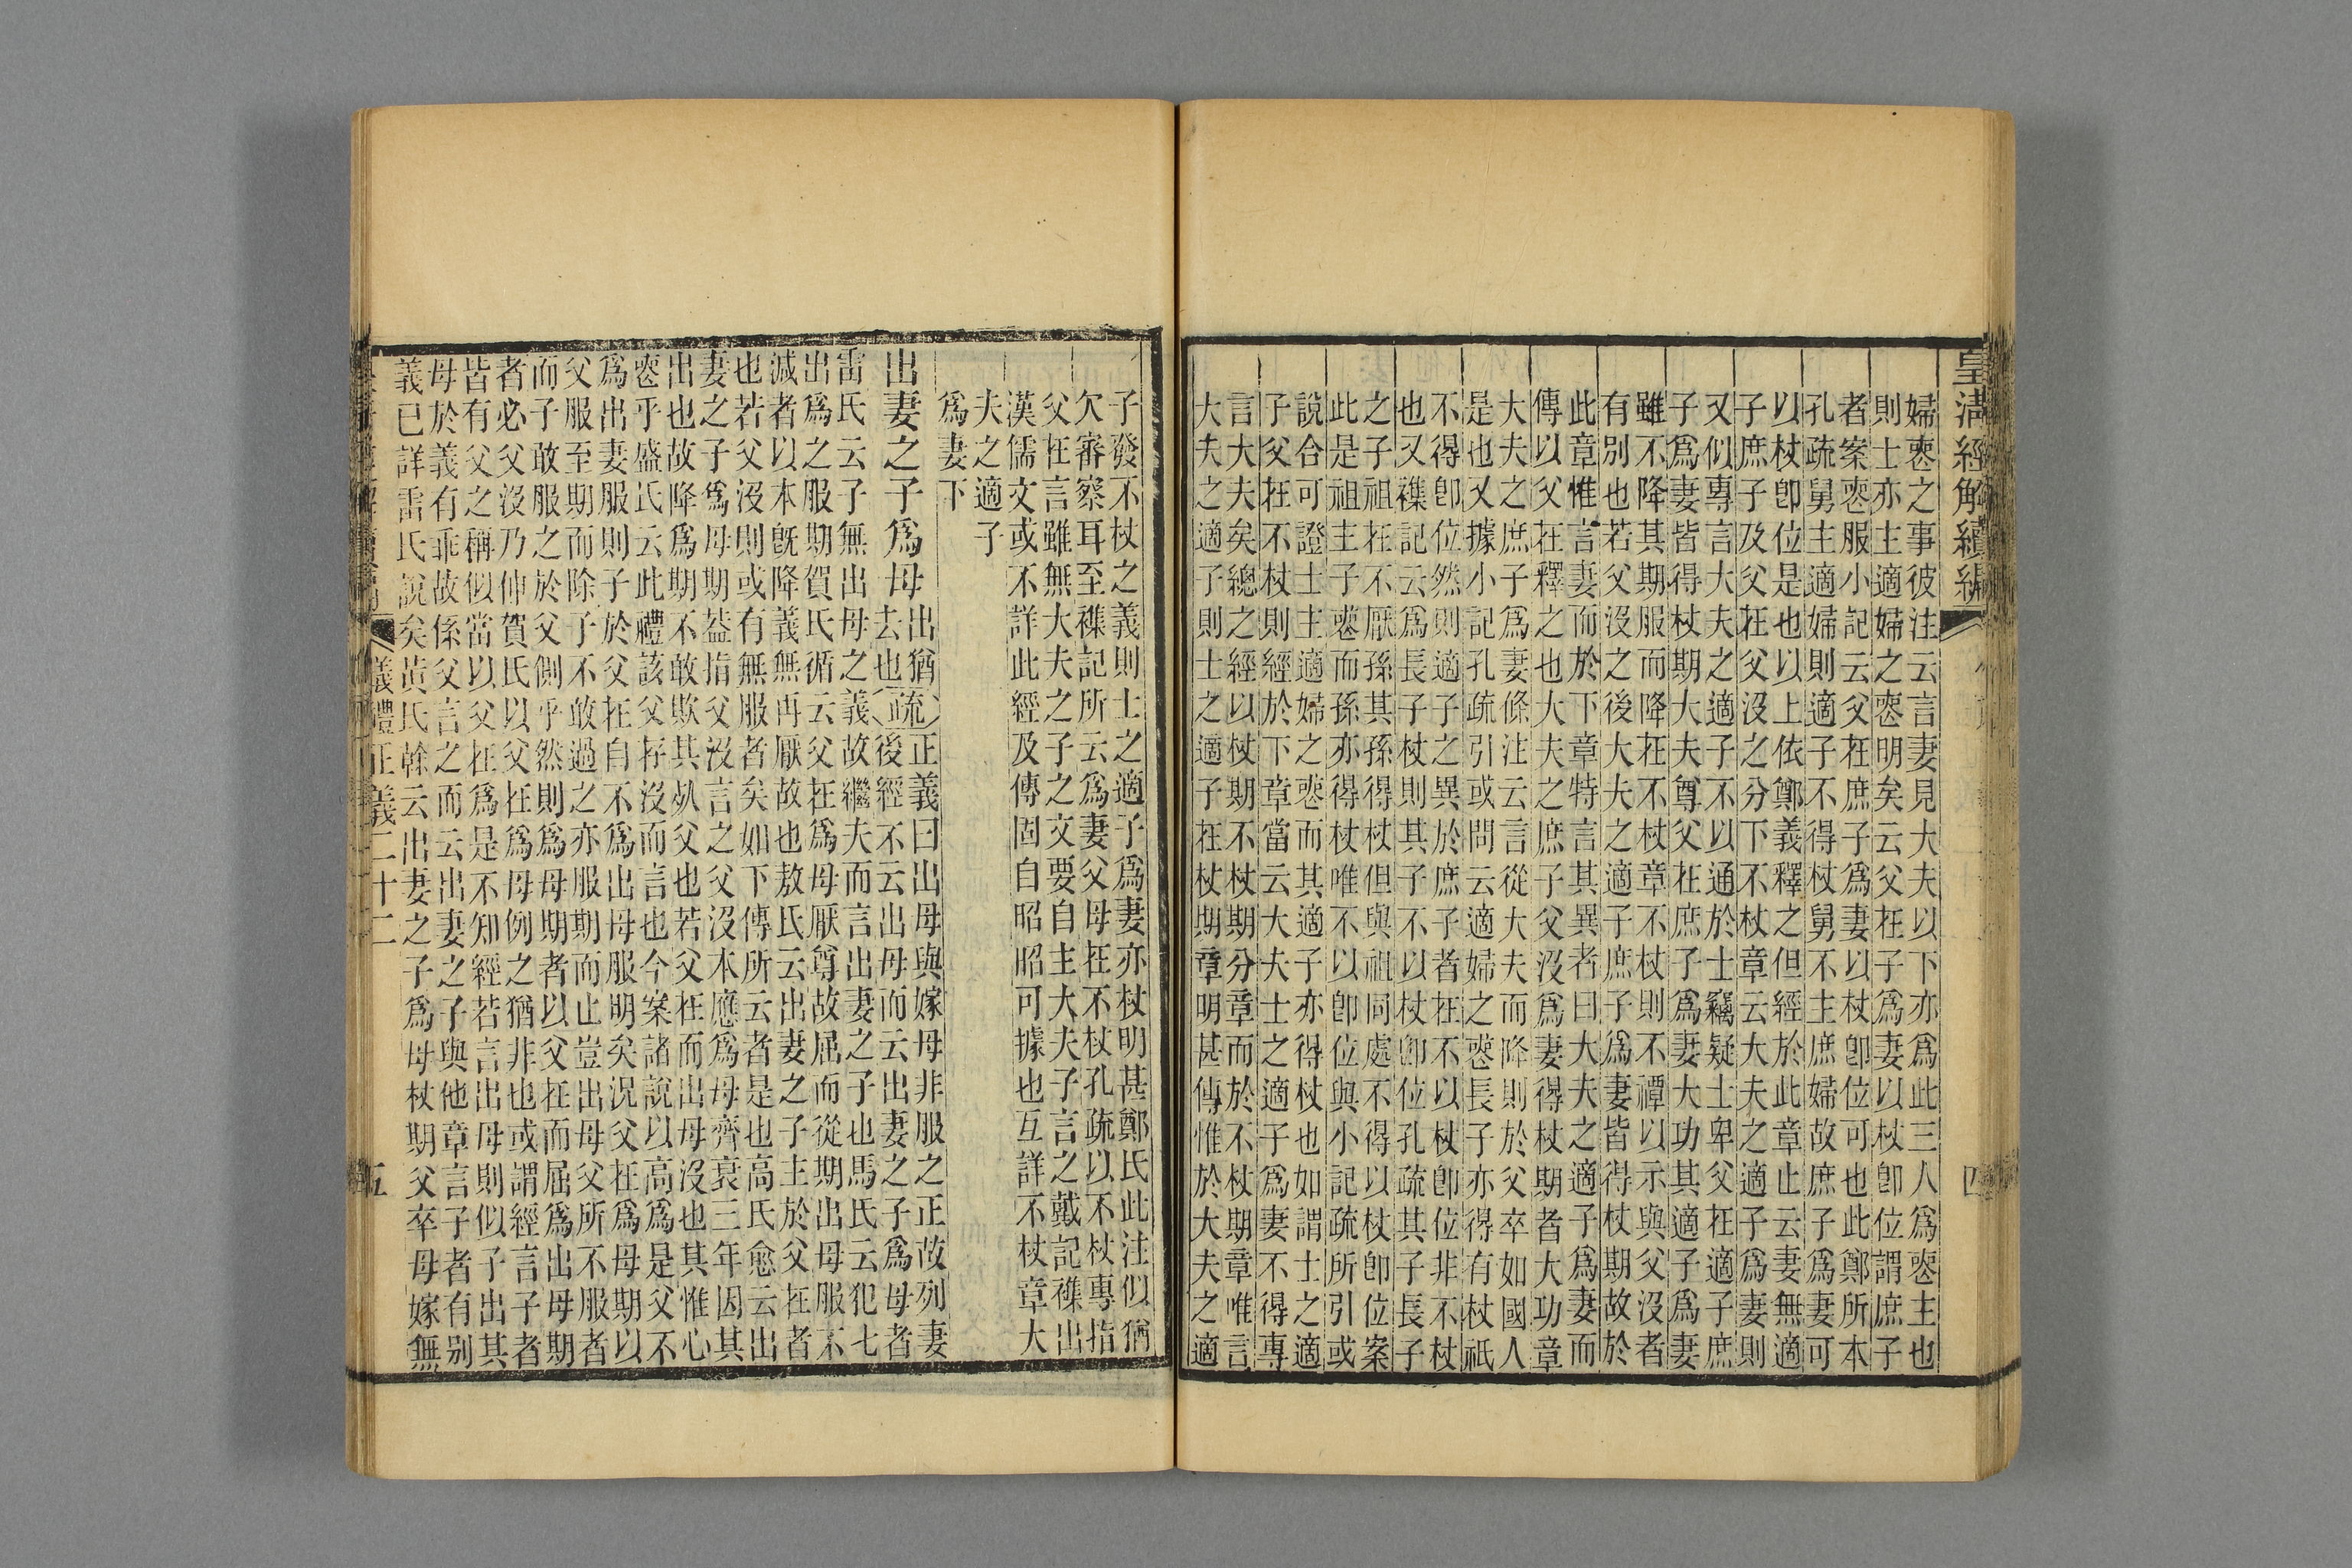 皇清經解續編
婦喪之事彼注云言妻見大夫以下亦爲此三人爲喪主也
則士亦主適婦之喪明矣云父在子爲妻以杖卽位謂庶子
者案喪服小記云父在庶子爲妻以杖卽位可也此鄭所本
孔疏舅主適婦則適子不得杖舅不主庶婦故庶子爲妻可
以杖卽位是也以上依鄭義釋之但經於此章止云妻無適
子庶子及父在父沒之分下不杖章云大夫之適子爲妻則
又似專言大夫之適子不以通於士竊疑士卑父在適子庶
子爲妻皆得杖期大夫尊父在庶子爲妻大功其適子爲妻
雖不降其期服而降在不杖章不杖則不禫以示與父沒者
有別也若父沒之後大夫之適子庶子爲妻皆得杖期故於
此章惟言妻而於下章特言其異者曰大夫之適子爲妻而
傳以父在釋之也大夫之庶子父沒爲妻得杖期者大功章
大夫之庶子爲妻條注云言從大夫而降則於父卒如國人
是也又據小記孔疏引或問云適婦之喪長子亦得有杖祇
不得卽位然則適子之異於庶子者在不以杖卽位非不杖
也又襍記云爲長子杖則其子不以杖卽位孔疏其子長子
之子祖在不厭孫其孫得杖但與祖同處不得以杖卽位案
此是祖主子喪而孫亦得杖唯不以卽位與小記疏所引或
說合可證士主適婦之喪而其適子亦得杖也如謂士之適
子父在不杖則經於下章當云大夫士之適子爲妻不得專
言大夫矣總之經以杖期不杖期分章而於不杖期章唯言
大夫之適子則士之適子在杖期章明甚傳惟於大夫之適
四
子發不杖之義則士之適子爲妻亦杖明甚鄭氏此注似猶
欠審察耳至襍記所云爲妻父母在不杖孔疏以不杖專指
父在言雖無大夫之子之文要自主大夫子言之戴記襍出
漢儒文或不詳此經及傳固自昭昭可據也互詳不杖章大
夫之適子
爲妻下
出妻之子爲母
出猶
去也
疏
正義曰出母與嫁母非服之正故列妻
後經不云出母而云出妻之子爲母者
雷氏云子無出母之義故繼夫而言出妻之子也馬氏云犯七
出爲之服期賀氏循云父在爲母厭尊故屈而從期出母服不
減者以本既降義無再厭故也敖氏云出妻之子主於父在者
也若父沒則或有無服者矣如下傳所云者是也高氏愈云出
妻之子爲母期蓋指父沒言之父沒本應爲母齊衰三年因其
出也故降爲期不敢欺其死父也若父在而出母沒也其惟心
喪乎盛氏云此禮該父存沒而言也今案諸說以高爲是父不
爲出妻服則子於父在自不爲出母服明矣況父在爲母期以
父服至期而除子不敢過之亦服期而止豈出母父所不服者
而子敢服之於父側乎然則爲母期者以父在而屈爲出母期
者必父沒乃伸賀氏以父在爲母例之猶非也或謂經言子者
皆有父之稱似當以父在爲是不知經若言出母則似子出其
母於義有乖故係父言之而云出妻之子與他章言子者有别
義已詳雷氏說矣黃氏榦云出妻之子爲母杖期父卒母嫁無
儀禮正義二十二
五